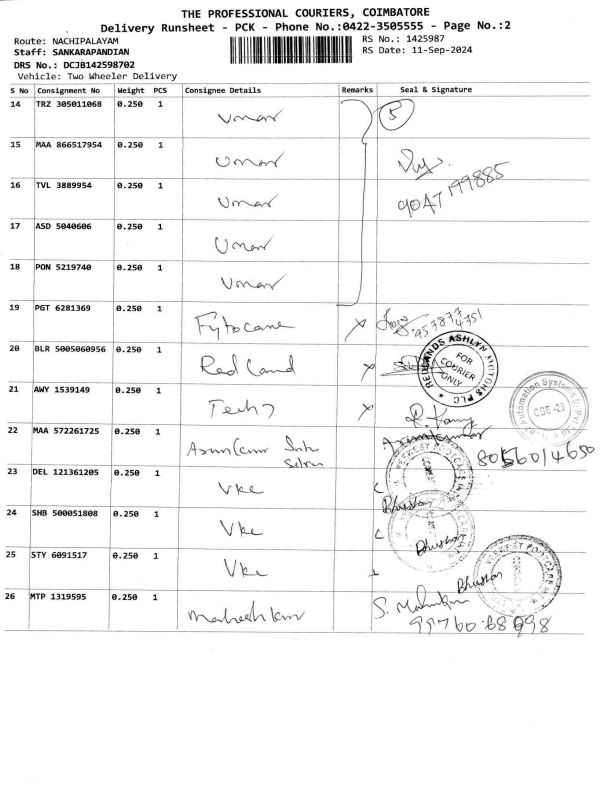 THE PROFESSIONAL COURIERS, COIMBATORE
Delivery Runsheet - PCK - Phone No.:0422-3505555 - Page No.:2
Route: NACHIPALAYAM
RS No.: 1425987
Staff: SANKARAPANDIAN
RS Date: 11-Sep-2024
DRS No.: DCJB142598702
Vehicle: Two Wheeler Delivery
S No Consignment No Weight PCS Consignee Details Remarks Seal & Signature
14 TRZ 305011068 0.250 1 Umar 5
15 MAA 866517954 0.250 1 Umar
16 TVL 3889954 0.250 1 Umar
17 ASD 5040606 0.250 1 Umar
18 PON 5219740 0.250 1 Umar
19 PGT 6281369 0.250 1 Fytocare
20 BLR 5005060956 0.250 1 Redland
REDLANDS ASHLYN MOTORS PLC
FOR COURIER ONLY
21 AWY 1539149 0.250 1 Tech 7
Automation Systems
CBE-29
22 MAA 572261725 0.250 1
23 DEL 121361205 0.250 1 Vkc
Bhuskar
24 SHB 500051808 0.250 1 Vkc
Bhuskar
25 STY 6091517 0.250 1 Vkc
Bhuskar
26 MTP 1319595 0.250 1